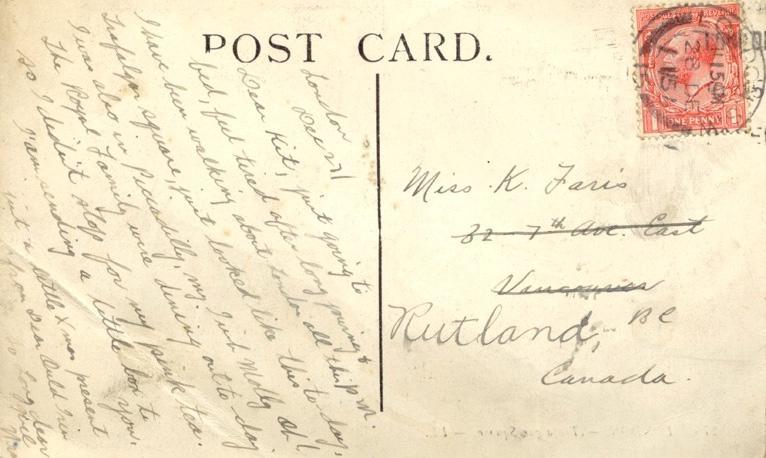 POST CARD.
London
Dec 21
Dear Kit, just going to
bed, feel tired after long
have been walking about London all this P.M.
I have
Trafalgar square, just looked like this to day,
I was also in Piccadilly, my Irish Molly Oh!
The Royal Family were dining out to day
so I didn't stop for my pink tea.
I am sending a little box to you,
just a little Xmas present
from Dear Auld Erin
so long dear
ONE PENNY
28 DE
Miss K. Faris
32 - 7th Ave. East
Vancouver
Rutland, BC
Canada.